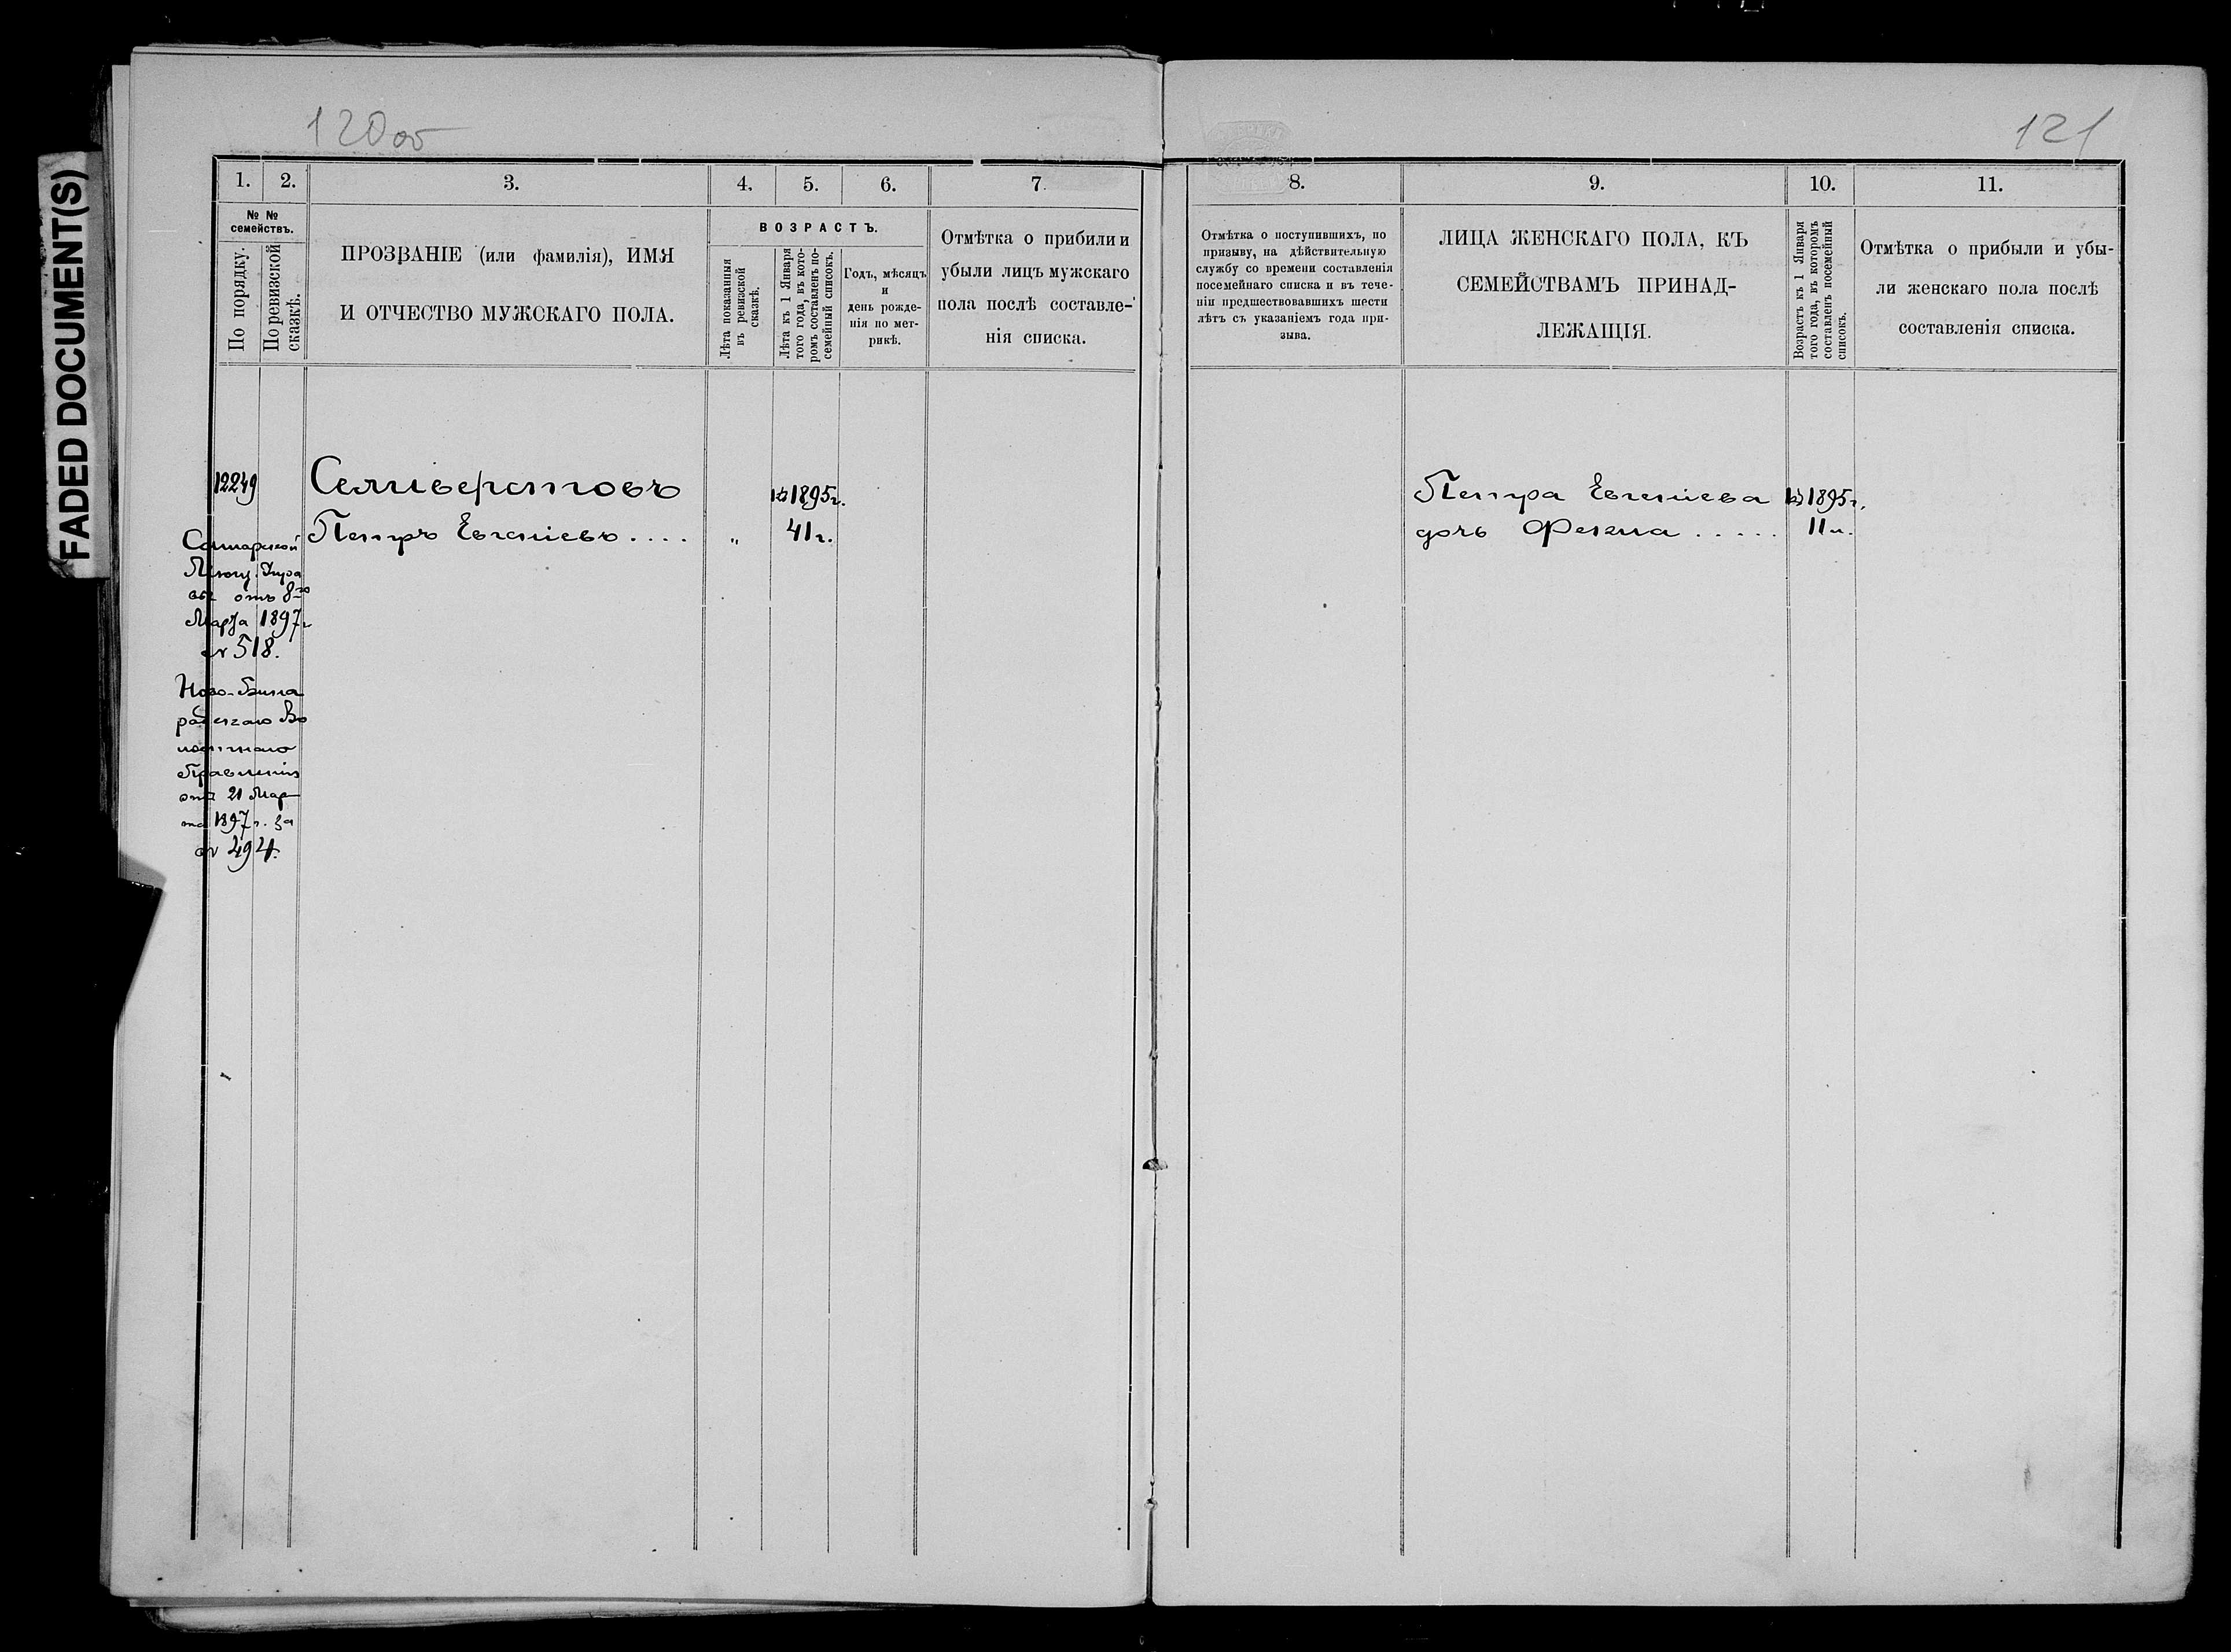 FADED DOCUMENT(S)
120об
121
1. 2. 3. 4. 5. 6. 7.
8. 9. 10. 11.
№ №
семействъ.
По порядку.
По ревизской
сказкѣ.
ПРОЗВАНІЕ (или фамилія), ИМЯ
И ОТЧЕСТВО МУЖСКАГО ПОЛА.
ВОЗРАСТЪ.
Лѣта показанныя
въ ревизской
сказкѣ.
Лѣта къ 1 Января
того года, въ кото-
ромъ составленъ по-
семейный списокъ.
Годъ, мѣсяцъ
и
день рожде-
нія по мет-
рикѣ.
Отмѣтка о прибыли и
убыли лицъ мужскаго
пола послѣ составле-
нія списка.
Отмѣтка о поступившихъ, по
призыву, на дѣйствительную
службу со времени составленія
посемейнаго списка и въ тече-
ніи предшествовавшихъ шести
лѣтъ съ указаніемъ года при-
зыва.
ЛИЦА ЖЕНСКАГО ПОЛА, КЪ
СЕМЕЙСТВАМЪ ПРИНАД-
ЛЕЖАЩІЯ.
Возрастъ къ 1 Января
того года, въ которомъ
составленъ посемейный
списокъ.
Отмѣтка о прибыли и убы-
ли женскаго пола послѣ
составленія списка.
12249
Селиверстовъ
1895г.
Петръ Евгеніевъ.... „ 41г.
Самарской
Мѣщ. Упра
вы отъ 8го
Марта 1897г
№ 518.
Ново-
Во
лостнаго
Правленія
отъ 21 Мар
та 1897г. за
№ 494.
Петра Евгеніева 1895г.
дочь Фекла..... 11л.